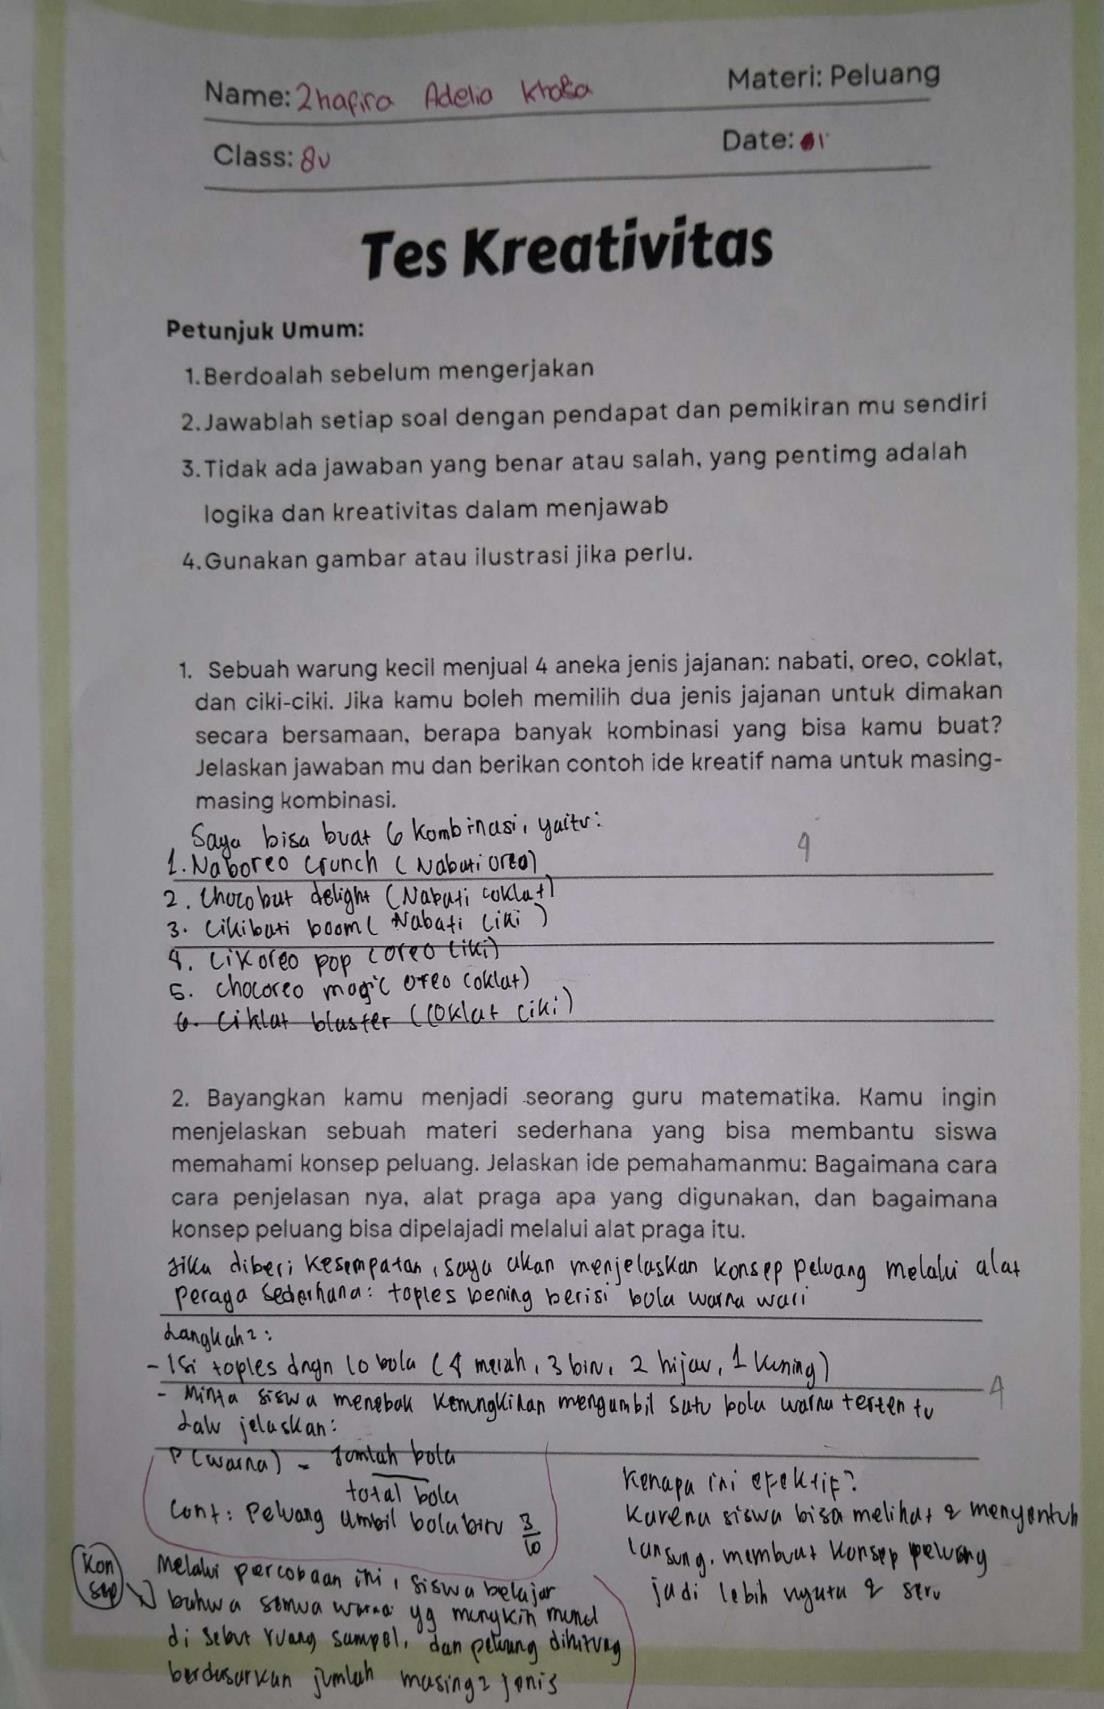 Name: Zhafira Adelia Khoβa
Materi: Peluang
Class: 8U
Date: 01
Tes Kreativitas
Petunjuk Umum:
1. Berdoalah sebelum mengerjakan
2. Jawablah setiap soal dengan pendapat dan pemikiran mu sendiri
3. Tidak ada jawaban yang benar atau salah, yang pentimg adalah
logika dan kreativitas dalam menjawab
4. Gunakan gambar atau ilustrasi jika perlu.
1. Sebuah warung kecil menjual 4 aneka jenis jajanan: nabati, oreo, coklat,
dan ciki-ciki. Jika kamu boleh memilih dua jenis jajanan untuk dimakan
secara bersamaan, berapa banyak kombinasi yang bisa kamu buat?
Jelaskan jawaban mu dan berikan contoh ide kreatif nama untuk masing-
masing kombinasi.
Saya bisa buat 6 kombinasi, yaitu:
4
1. Naboreo crunch (Nabati oreo)
2. Chocobat delight (Nabati coklat)
3. Cikibati boom (Nabati Ciki)
4. Cikoreo pop (oreo Ciki)
5. chocoreo magic oreo coklat)
6. Ciklat blaster (Coklat Ciki)
2. Bayangkan kamu menjadi seorang guru matematika. Kamu ingin
menjelaskan sebuah materi sederhana yang bisa membantu siswa
memahami konsep peluang. Jelaskan ide pemahamanmu: Bagaimana cara
cara penjelasan nya, alat praga apa yang digunakan, dan bagaimana
konsep peluang bisa dipelajadi melalui alat praga itu.
Jika diberi kesempatan, saya akan menjelaskan konsep peluang melalui alat
peraga sederhana: toples bening berisi bola warna wari
Langkah2:
- Isi toples dngn 10 bola (4 merah, 3 biru, 2 hijau, 1 kuning)
- Minta siswa menebak kemungkinan mengambil satu bola warna tertentu
4
Lalu jelaskan:
P (warna) = Jumlah bola
total bola
Cont: Peluang ambil bola biru 3/10
Kon
sep
Melalui percobaan ini, siswa belajar
bahwa semua warna yg mungkin muncul
di sebut ruang sampel, dan peluang dihitung
berdasarkan jumlah masing2 jenis
Kenapa ini efektif?
Karena siswa bisa melihat & menyentuh
lansung, membuat konsep peluang
jadi lebih nyata & seru